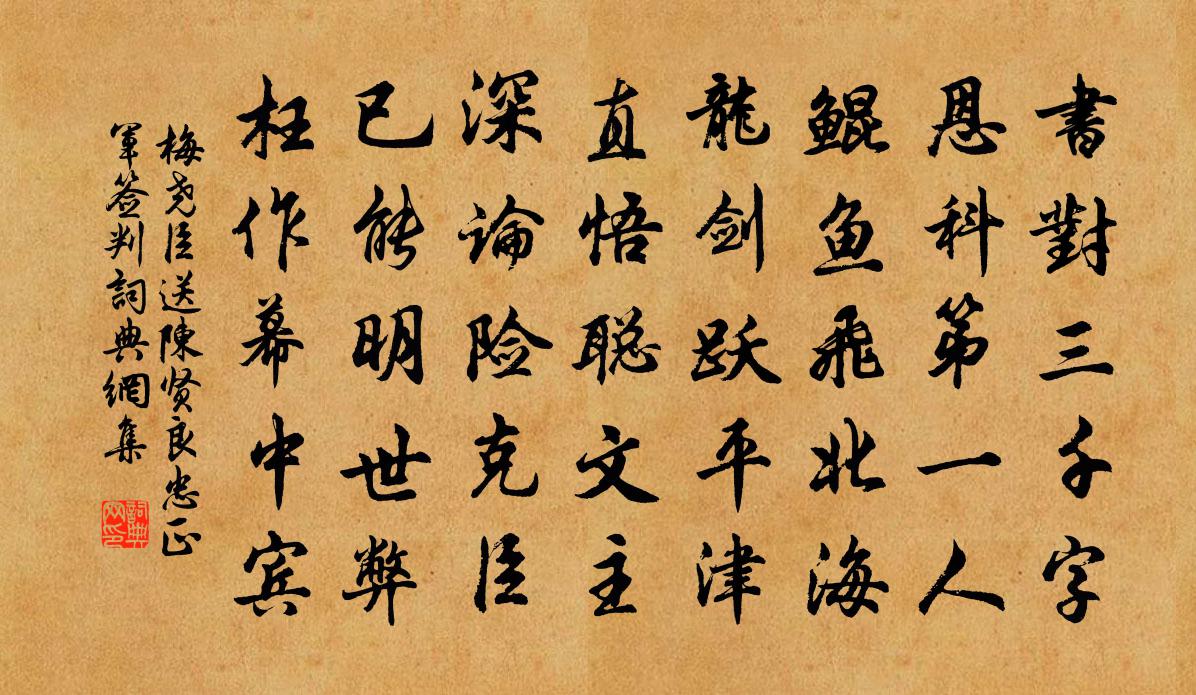 書對三千字
恩科第一人
鯤魚飛北海
龍剑跃平津
直悟聪文主
深論险克臣
已能明世弊
枉作幕中宾
梅尧臣送陳贤良忠正
軍簽判詞典網集
詞典
网印